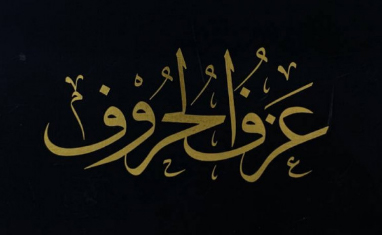 عَزْفُ الحُرُوْف